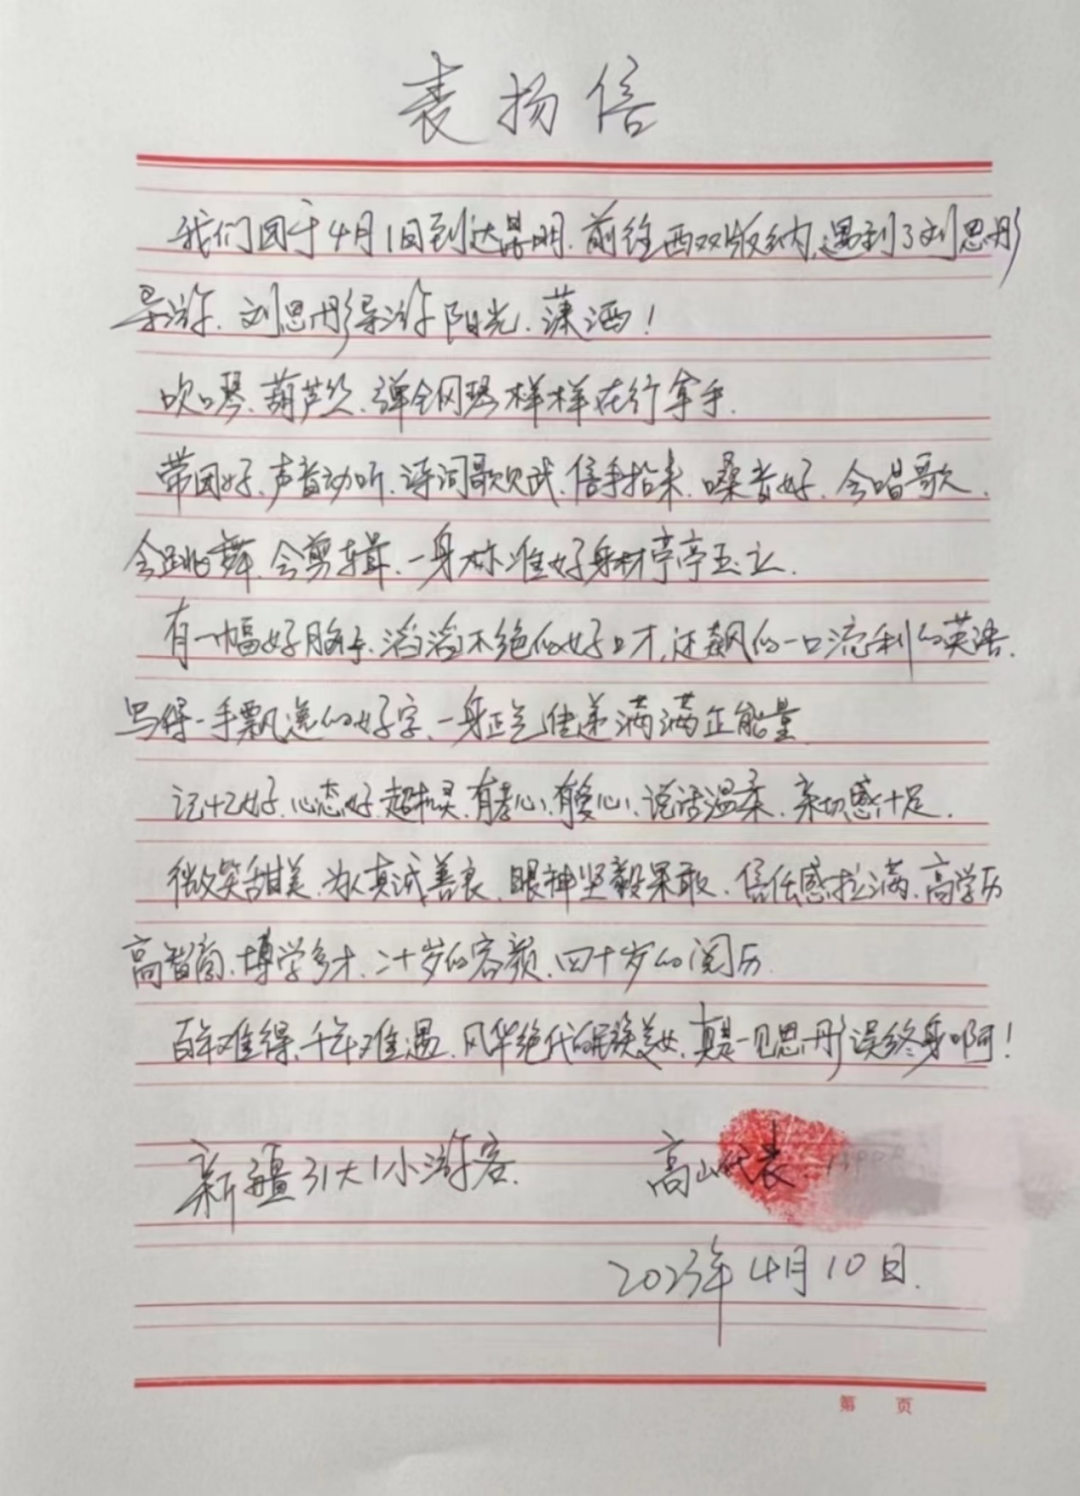 表扬信
我们团于4月1日到达昆明.前往西双版纳,遇到了刘思彤
导游.刘思彤导游阳光.潇洒!
吹口琴.葫芦丝.弹钢琴样样在行拿手.
带团好.声音动听.诗词歌赋.信手拈来.嗓音好.会唱歌.
会跳舞.会剪辑.一身标准好身材亭亭玉立.
有一幅好胸.滔滔不绝的好口才,还飙的一口流利的英语.
写得一手飘逸的好字、一身正气传递满满正能量
记忆好.心态好.超机灵.有孝心、有爱心、说话温柔.亲切感十足.
微笑甜美.为人真诚善良.眼神坚毅果敢.信任感拉满.高学历
高智商、博学多才.二十岁的容颜.四十岁的阅历.
百年难得、千年难遇.风华绝代的民族美女.真是一见思彤误终身啊!
新疆31大1小游客. 高山代表.
2023年4月10日.
第 页